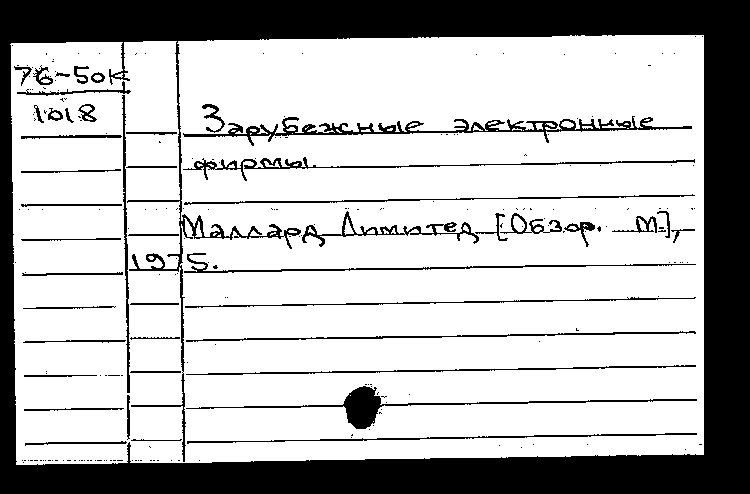 76-50к
1018
Зарубежные электронные
фирмы.
Маллард Лимитед [Обзор. М.],
1975.